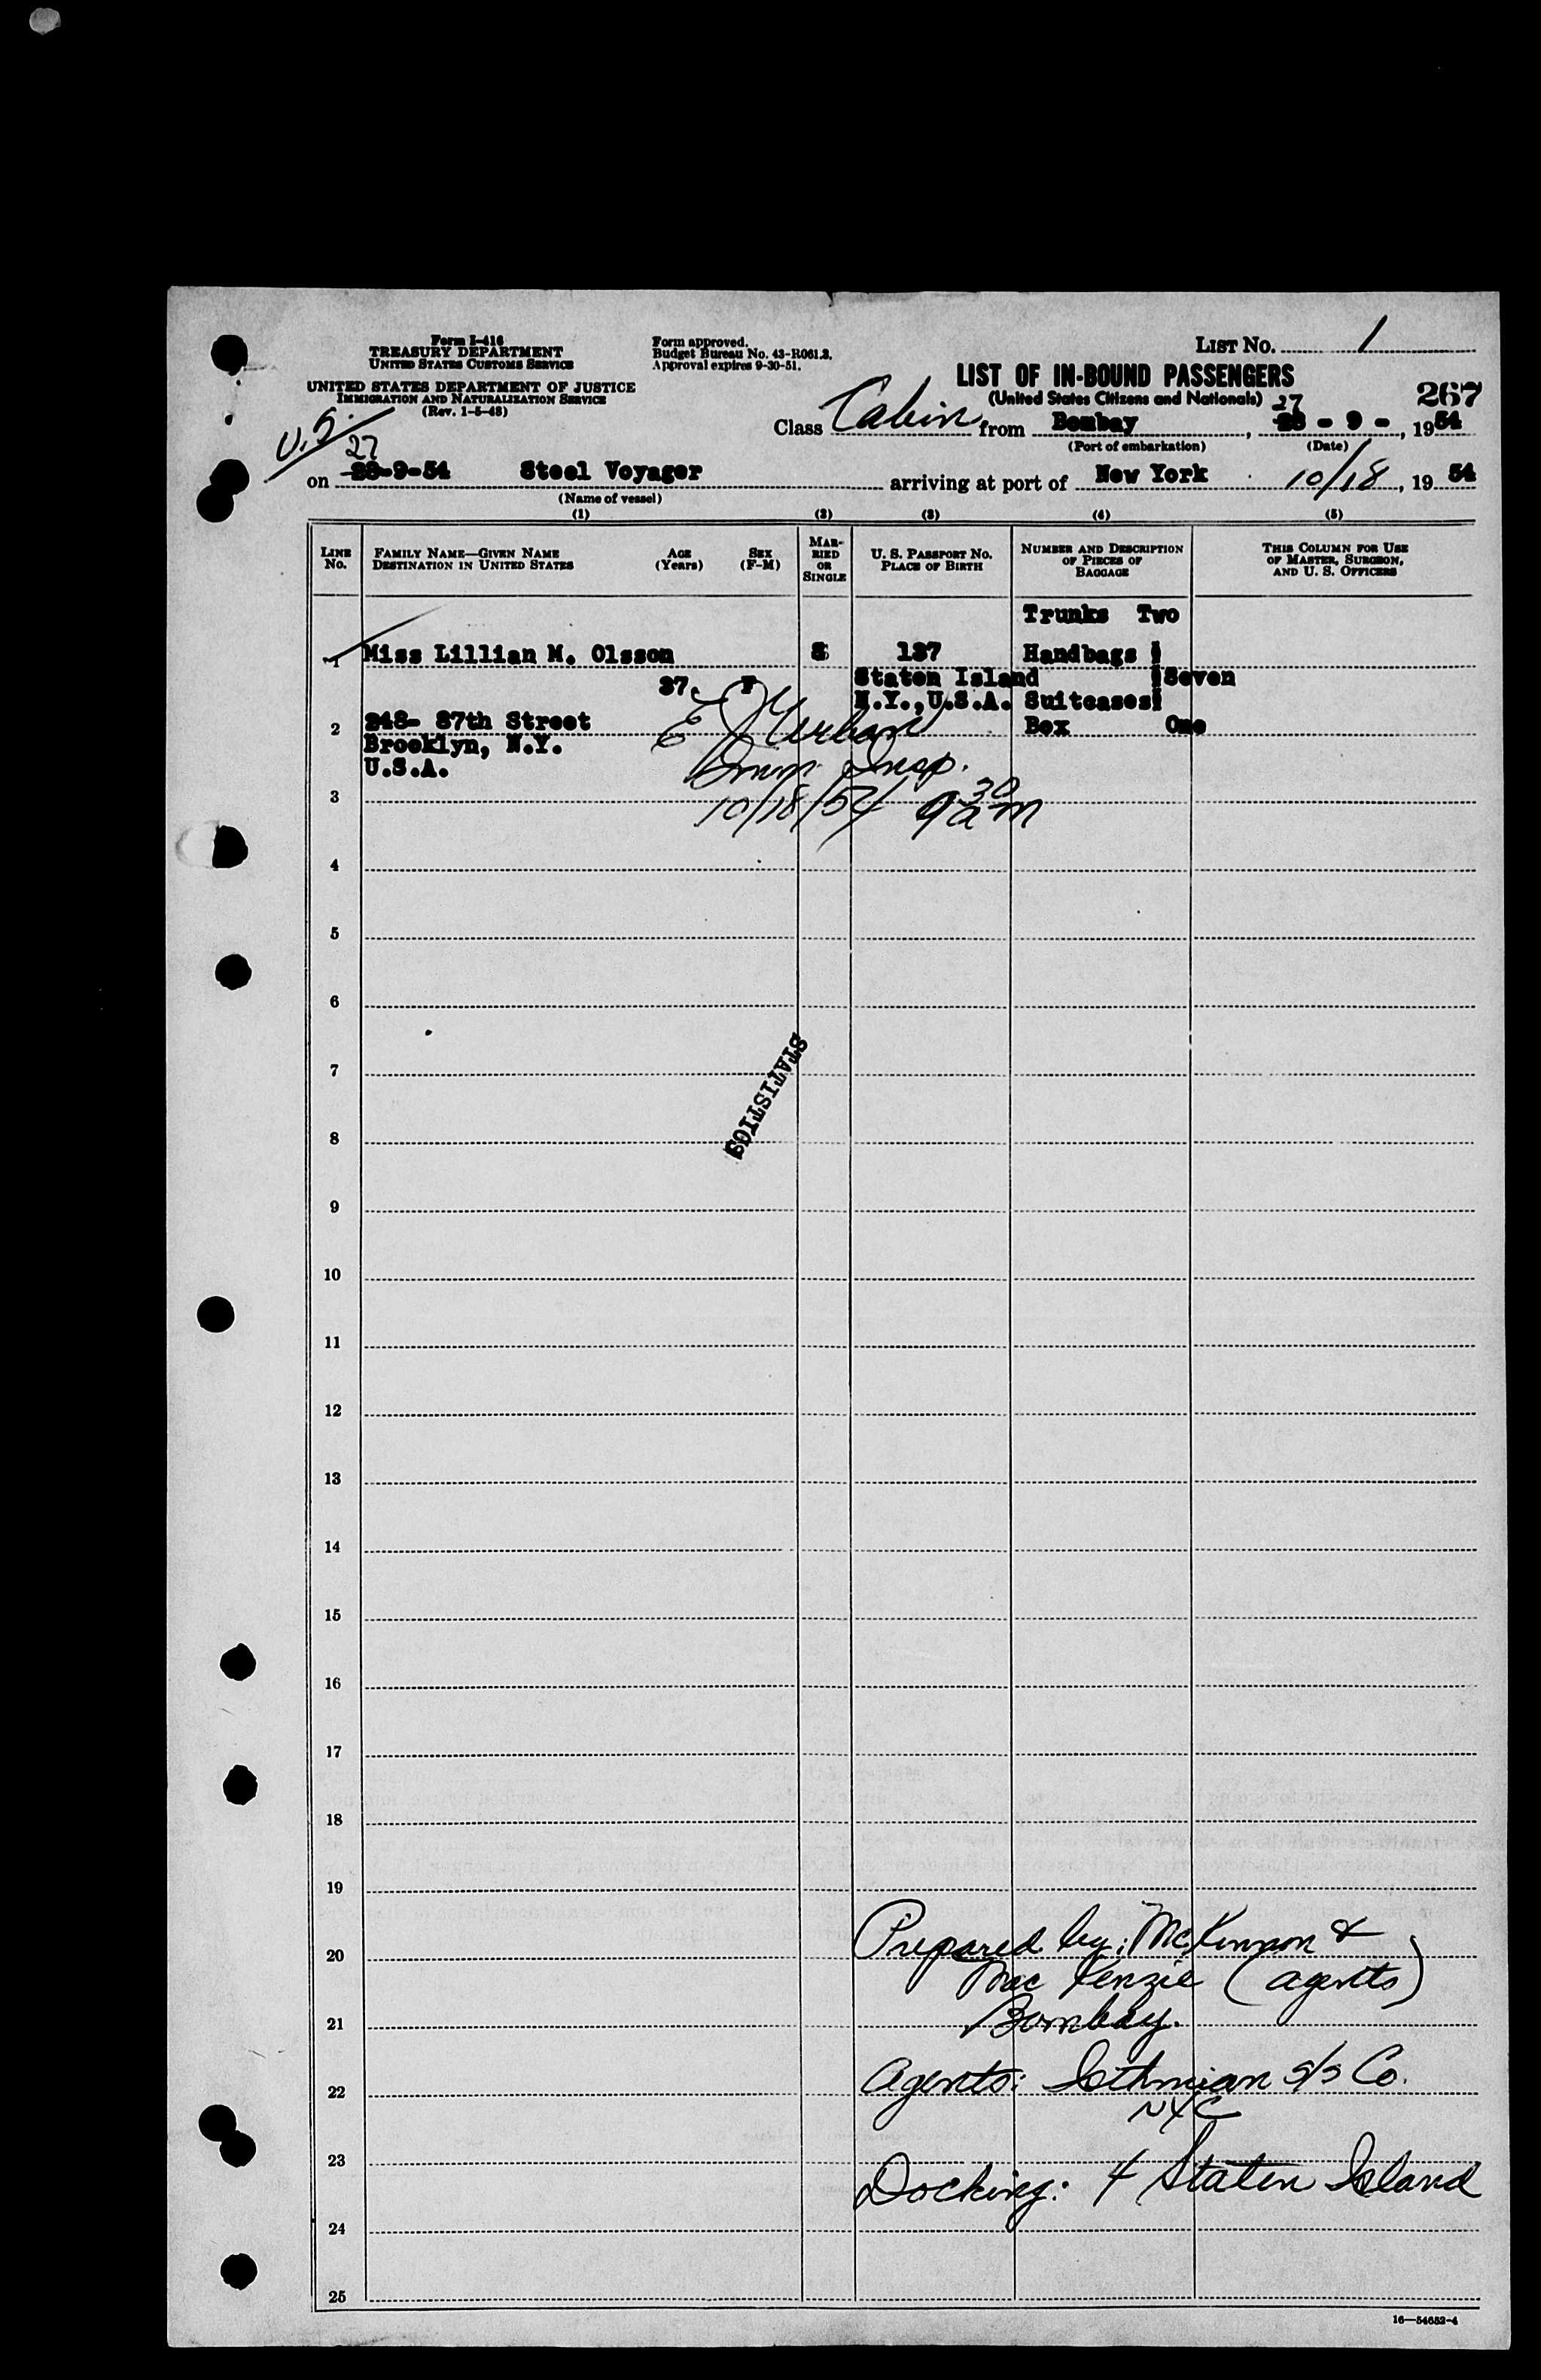 Form I-416
TREASURY DEPARTMENT
UNITED STATES CUSTOMS SERVICE
UNITED STATES DEPARTMENT OF JUSTICE
IMMIGRATION AND NATURALIZATION SERVICE
(Rev. 1-5-48)
Form approved.
Budget Bureau No. 43-R061.3.
Approval expires 9-30-51.
LIST NO. 1
LIST OF IN-BOUND PASSENGERS
(United States Citizens and Nationals)
267
U.S.
27
Class Cabin from Bombay, 28 - 9 -, 1954
(Port of embarkation) (Date)
27
on 28-9-54 Steel Voyager arriving at port of New York 10/18, 19 54
(Name of vessel)
(1) (2) (3) (4) (5)
LINE NO.
FAMILY NAME—GIVEN NAME
DESTINATION IN UNITED STATES
AGE (Years)
SEX (F-M)
MARRIED OR SINGLE
U. S. PASSPORT NO.
PLACE OF BIRTH
NUMBER AND DESCRIPTION OF PIECES OF BAGGAGE
THIS COLUMN FOR USE OF MASTER, SURGEON, AND U. S. OFFICERS
Trunks Two
1 Miss Lillian M. Olsson S 137 Handbags
37. F Staten Island Seven
N.Y.,U.S.A. Suitcases
2 248- 87th Street Box One
Brooklyn, N.Y.
U.S.A.
Imm. Insp.
3 10/18/54 9 30 am
4
5
6
7
STATISTICS
8
9
10
11
12
13
14
15
16
17
18
19
20 Prepared by: McKinnon &
Mac Kenzie (agents)
21 Bombay.
22 Agents: Isthmian S/S Co.
NYC
23 Docking: 4 Staten Island
24
25
16—54652-4